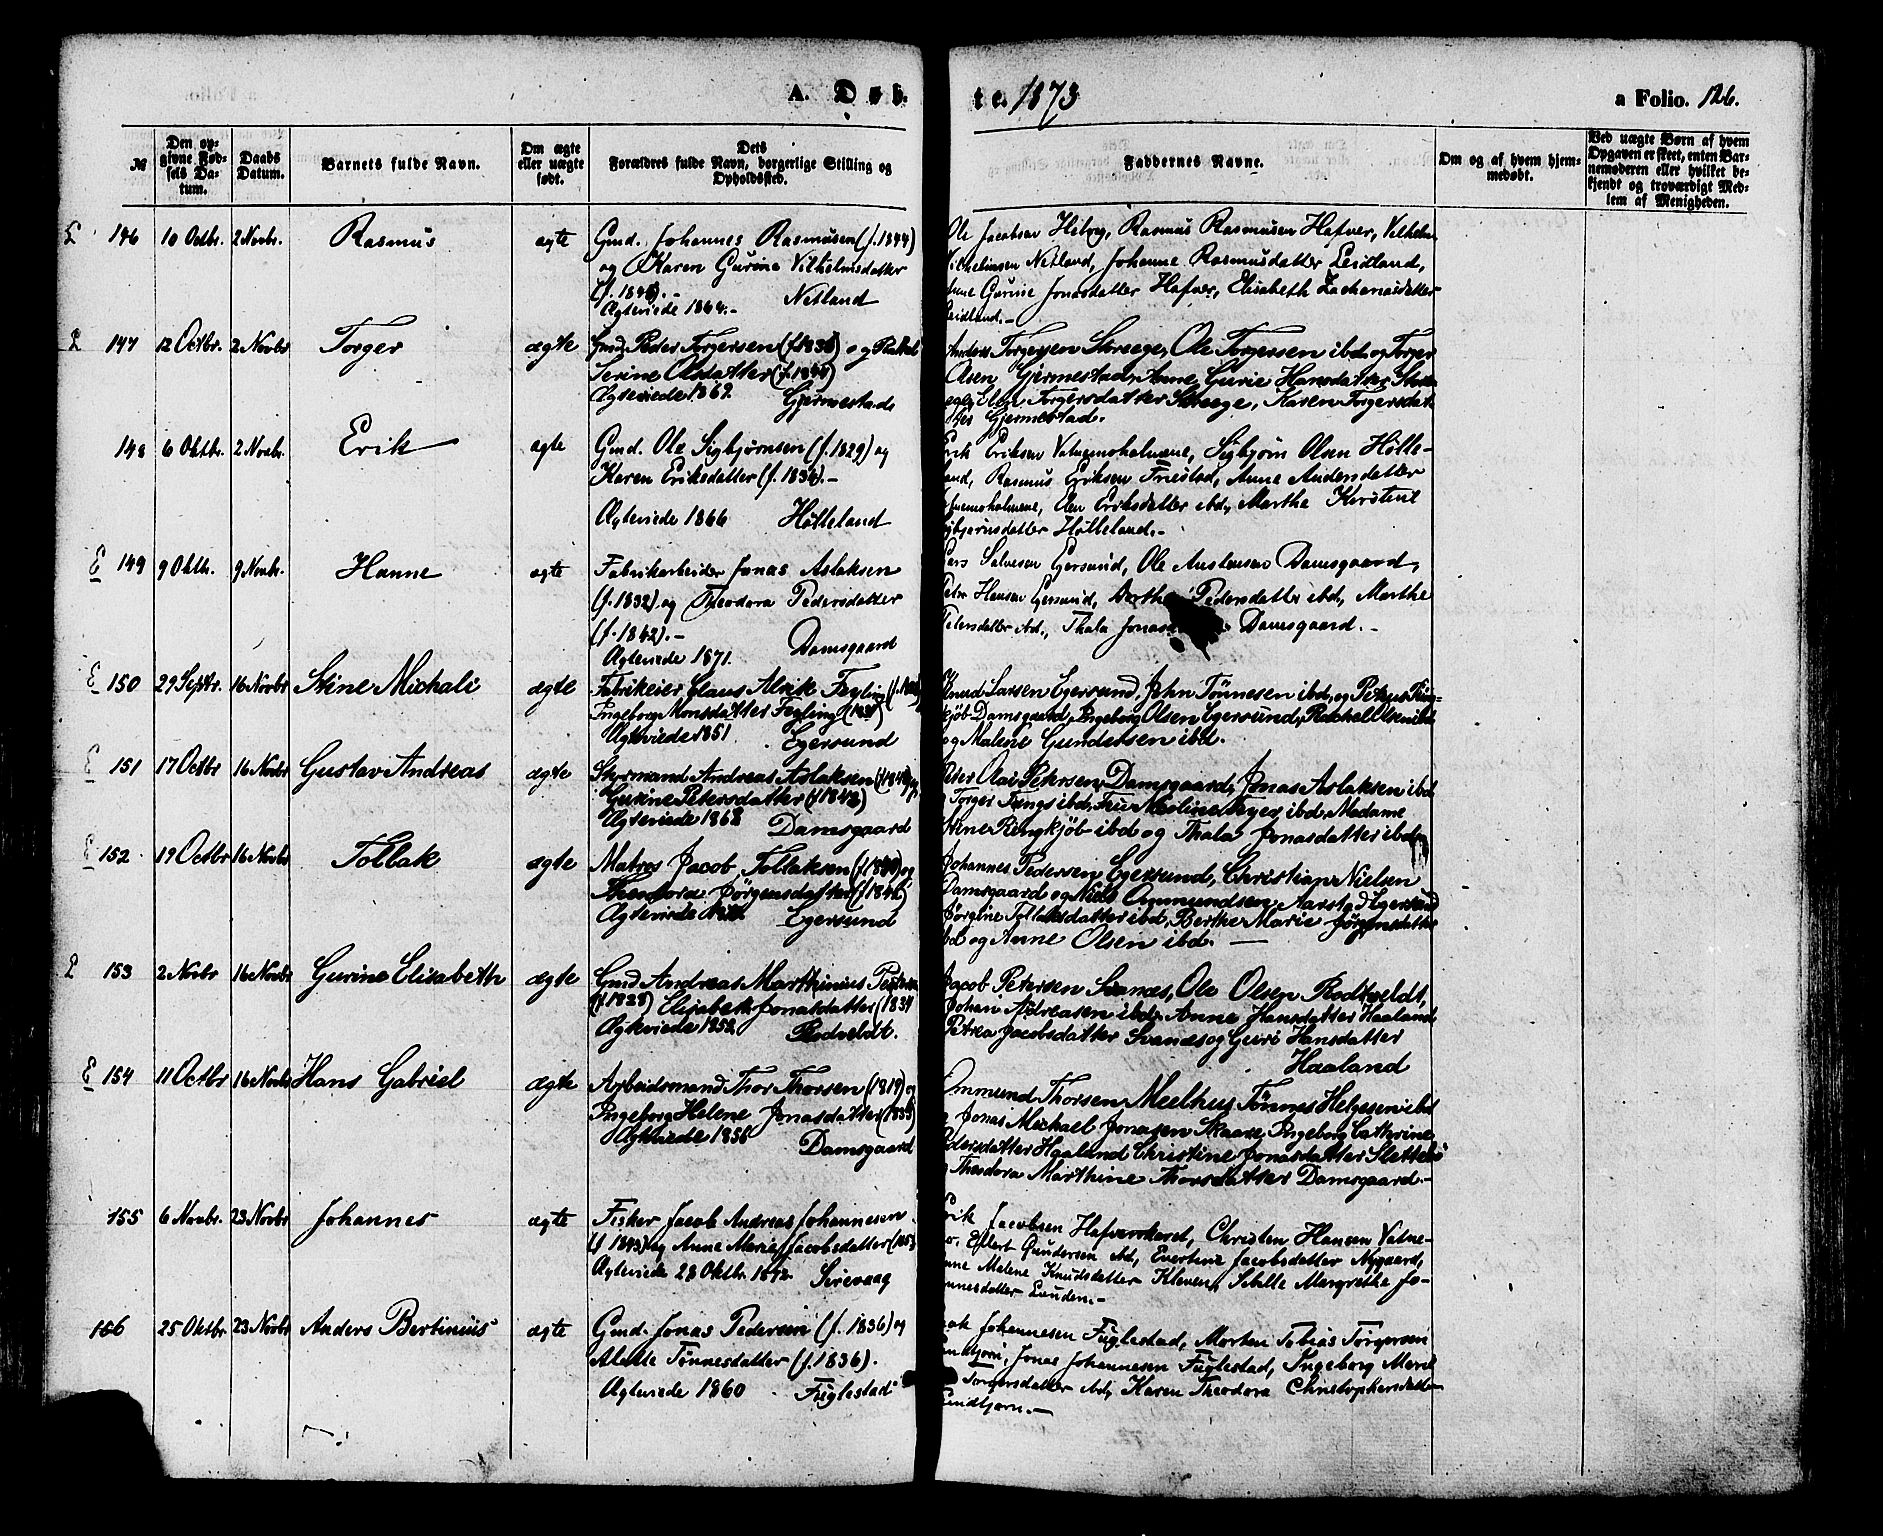 A. Døb-
te. 1873
a Folio. 126.
№
Den op-
givne Fød-
sels Da-
tum.
Daabs
Datum.
Barnets fulde Navn.
Om ægte
eller uægte
født.
Dets
Forældres fulde Navn, borgerlige Stilling og
Opholdssted.
Faddernes Navne.
Om og af hvem hjem-
medøbt.
Ved uægte Børn af hvem
Opgaven er skeet, enten Bar-
nemoderen eller hvilket be-
kjendt og troværdigt Med-
lem af Menigheden.
146 10 Octbr. 2 Novbr. Rasmus ægte
Gmd. Johannes Rasmusen (f. 1844)
og Karen Gurine Vilhelmsdatter
Netland
Ægteviede 1864.-
Ole Jacobsen Rasmus Rasmusen Hafver, Vilhelm
Vilhelmsen Netland, Johanne Rasmusdatter Leidland,
Gurine Jonasdatter Hafver, Elisabeth Zachariasdatter
Leidland.-
147 12 Octbr. 2 Novbr Torger ægte
Gmd. Peder Torgersen og Rakel
Serine Olsdatter
Ægteviede 1869. Gjermestad
Anders Torgersen Skreege, Ole Torgersen ibd. og Torger
Olsen Gjermestad, Anne Gurie Hansdatter
Elen Torgersdatter Skreege, Karen Torgersdat-
ter Gjermestad.
148 6 Oktbr. 2 Novbr. Erik ægte
Gmd. Ole Sigbjørnsen (f. 1829) og
Karen Eriksdatter (f. 1836).-
Ægteviede 1866 Hølleland
Erik Eriksen Sigbjørn Olsen Hølle-
land, Rasmus Eriksen Friestad, Anne Audensdatter
Elen Eriksdatter ibd., Marthe Kirstine
Sigbjørnsdatter Hølleland.-
E 149 9 Oktbr. 9 Novbr. Hanne ægte
Fabrikarbeider Jonas Aslaksen
(f. 1832) og Theodora Pedersdatter
(f. 1842).-
Damsgaard
Ægteviede 1871.
Salvesen Egersund, Ole Damsgaard,
Petr Hansen Egersund, Berthe Pedersdatter ibd., Marthe
Petersdatter ibd., Thala Damsgaard.-
E 150 29 Septr. 16 Novbr Stine Michali ægte
Fabrikeier Claus Alrik Feyling
Ingeborg Monsdatter Feyling
Ægteviede 1851 Egersund
Knud Larsen Egersund, John Tønnesen ibd, og Petrus Ring-
kjøb Damsgaard, Ingeborg Olsen Egersund, Rachel Olsen ibd
og Malene Gundersen ibd.
E 151 17 Octbr 16 Novbr Gustav Andreas ægte
Styrmand Andreas Aslaksen
Gurine Petersdatter
Ægteviede 1868 Damsgaard
Peter Petersen Damsgaard, Jonas Aslaksen ibd
Torger ibd, Feyer ibd, Madame
Stene Ringkjøb ibd og Thala Jonasdatter ibd.
E 152. 19 Octbr 16 Novbr Tollak ægte
Matros Jacob Tollaksen og
Theodora Jørgensdatter
Ægteviede Egersund
Johannes Pedersen Egersund, Christian Nielsen
Damsgaard og Niels Ommundsen Aarstad Egersund
Jørgine Tollaksdatter ibd, Berthe Marie Jørgensdatter
ibd og Anne Olsen ibd.
153 2 Novbr 16 Novbr Gurine Elisabeth ægte
Gmd Andreas Marthinius
(f. 1828) Elisabeth Jonasdatter
Ægteviede 1852. Rodveldt.
Jacob Petersen Svanæs, Ole Olsen Rodtveldt,
Johan Andreasen ibd, Anne Hansdatter Haaland
Petrea Jacobsdatter Svanæs og Guri Hansdatter
Haaland
E 154 11 Octbr 16 Novbr Hans Gabriel ægte
Arbeidsmand Thor Thorsen (1819) og
Ingeborg Helene Jonasdatter
Ægteviede 1856 Damsgaard
Ommund Thorsen Meelhus, Tønnes Helgesen ibd
Jonas Michael Jonasen Skaare, Ingeborg Cathrine
Pedersdatter Haaland Christine Jonasdatter
Theodora Marthine Thorsdatter Damsgaard.-
155 6 Novbr. 23 Novbr Johannes ægte
Fisker Jacob Andreas Johannesen
(f 1843) og Anne Marie Jacobsdatter
Ægteviede 28 Oktbr. 1872. Sirevaag
Erik Jacobsen Christen Hansen
Eilert Gundersen ibd, Evertine Jacobsdatter Nygaard,
Malene Knudsdatter Kleven, Sibille Margrethe Jo-
hannesdatter Lunden.-
156 25 Oktbr. 23 Novbr Anders Bertinius ægte
Gmd. Jonas Pedersen (f. 1836) og
Alette Tønnesdatter (f. 1836).
Ægteviede 1860 Fuglestad
Johannesen Fuglestad, Morten Tobias Torgersen
Jonas Johannesen Fuglestad, Ingeborg
Torgersdatter ibd, Karen Theodora Christophersdatter